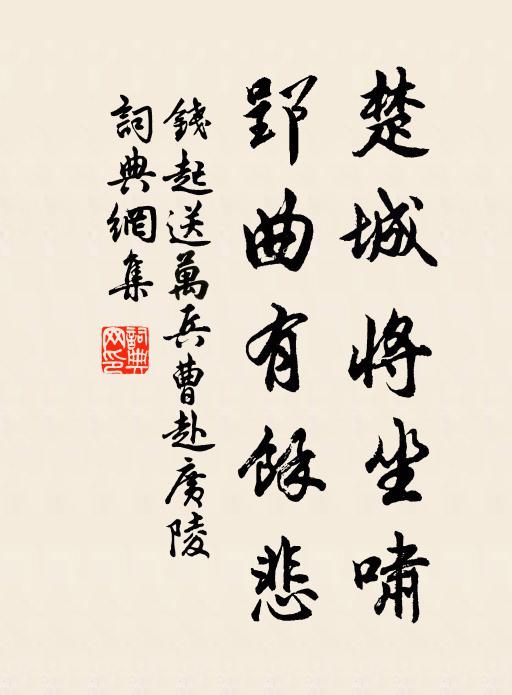 楚城將坐嘯
郢曲有餘悲
錢起送萬兵曹赴廣陵
詞典網集
詞典網印